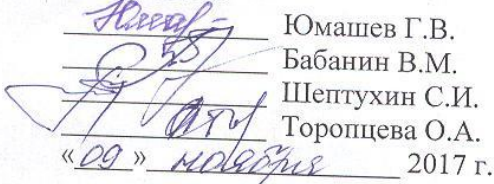 Юмашев Г.В.
Бабанин В.М.
Шептухин С.И.
Торопцева О.А.
«09» ноября 2017 г.